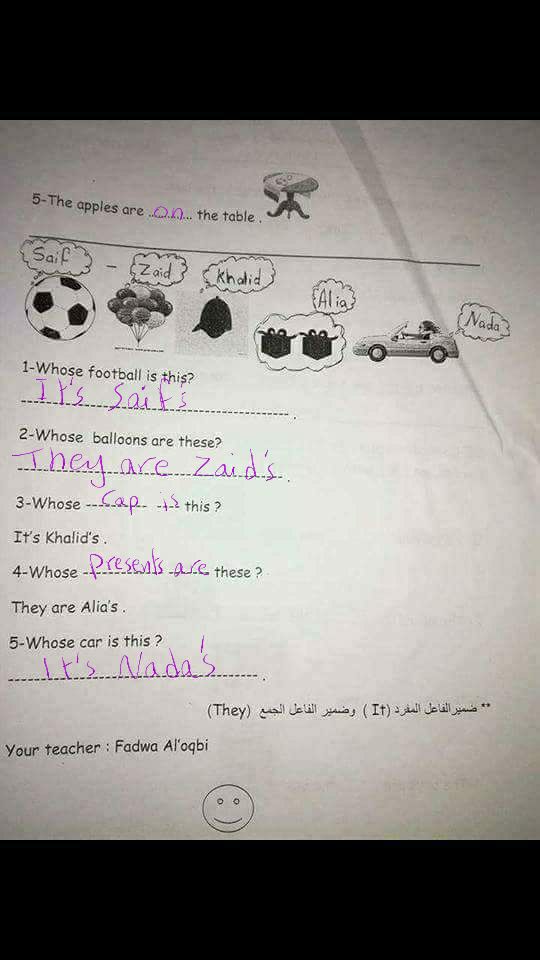 5-The apples are ..on... the table .
Saif - Zaid Khalid Alia Nada
1-Whose football is this?
It's Saif's .
2-Whose balloons are these?
They are Zaid's .
3-Whose cap is this ?
It's Khalid's .
4-Whose presents are these ?
They are Alia's .
5-Whose car is this ?
It's Nada's .
** ضمير الفاعل المفرد (It ) وضمير الفاعل الجمع (They)
Your teacher : Fadwa Al'oqbi